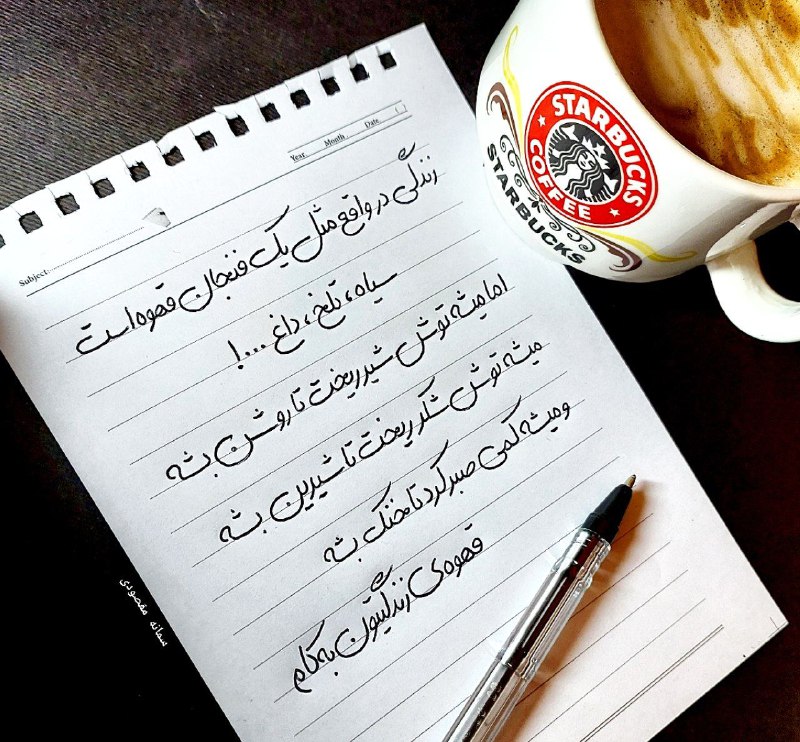 Year Month Date ( )
Subject:
زندگی در واقع مثل یک فنجان قهوه است
سیاه، تلخ، داغ ...!
اما میشه توش شیر ریخت تا روشن بشه
میشه توش شکر ریخت تا شیرین بشه
و میشه کمی صبر کرد تا خنک بشه
قهوه‌ی زندگیتون به کام
STARBUCKS
COFFEE
STARBUCKS
سمانه مقصودی